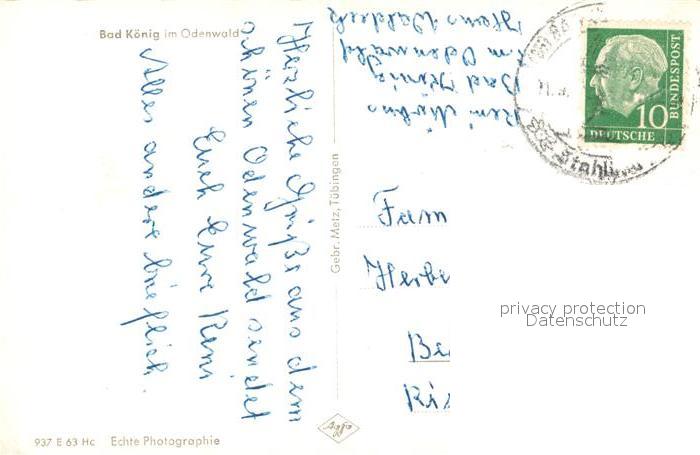 Bad König im Odenwald
Herzliche Grüße aus dem
schönen Odenwald sendet
Euch Eure Reni
Alles andere brieflich.
Reni
Bad König
im Odenwald
Haus Waldeck
BUNDESPOST
10
DEUTSCHE
Stahl
Gebr. Metz, Tübingen
Fam
Herbe
Be
Ri
privacy protection
Datenschutz
937 E 63 Hc Echte Photographie
Agfa